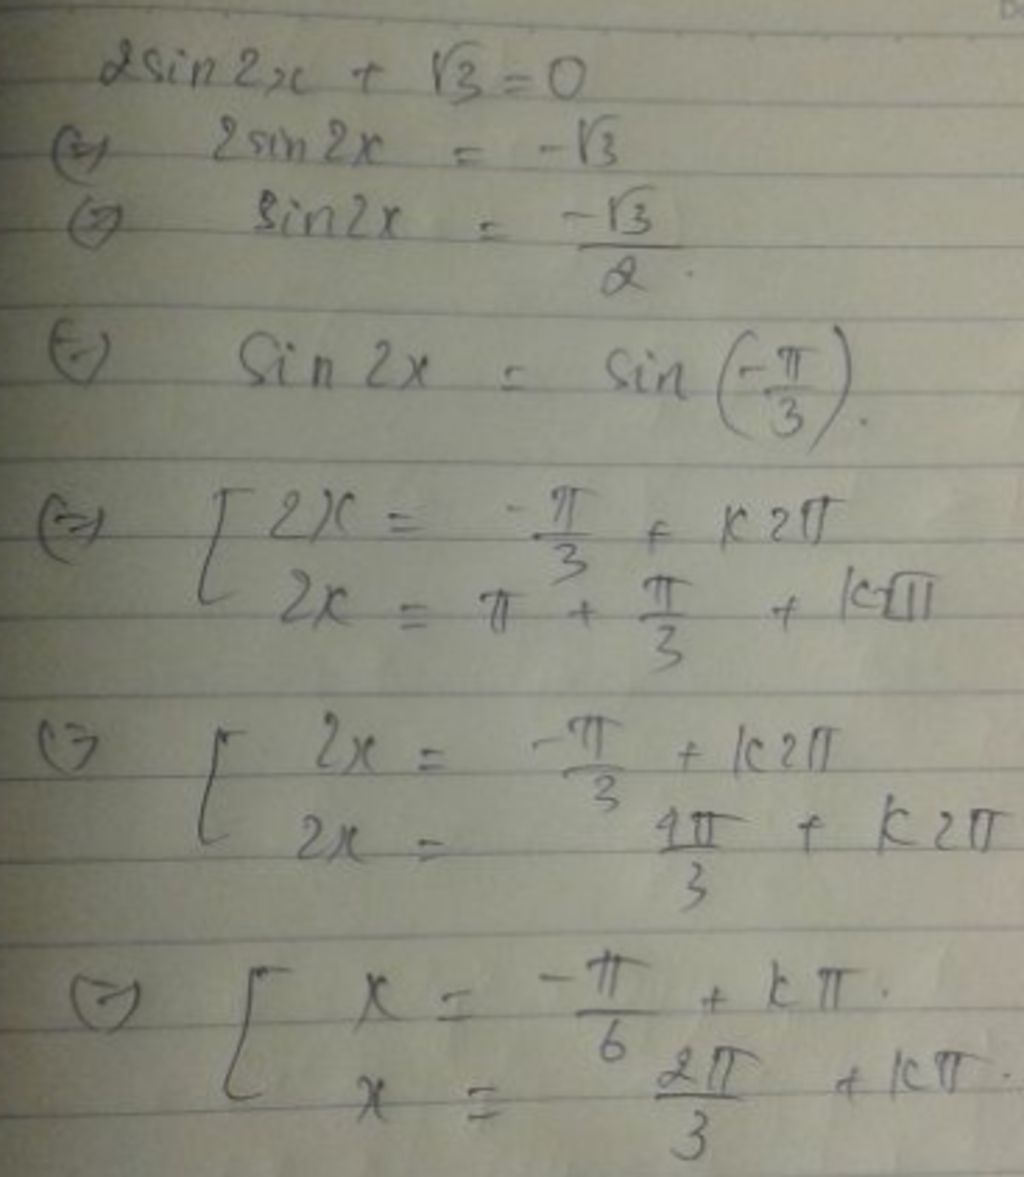 2sin2x + √3 = 0
⇔ 2sin2x = -√3
⇔ sin2x = -√3/2.
⇔ Sin 2x = sin(-π/3).
⇔ [ 2x = -π/3 + k2π
2x = π + π/3 + k2π
⇔ [ 2x = -π/3 + k2π
2x = 4π/3 + k2π
⇔ [ x = -π/6 + kπ.
x = 2π/3 + kπ.